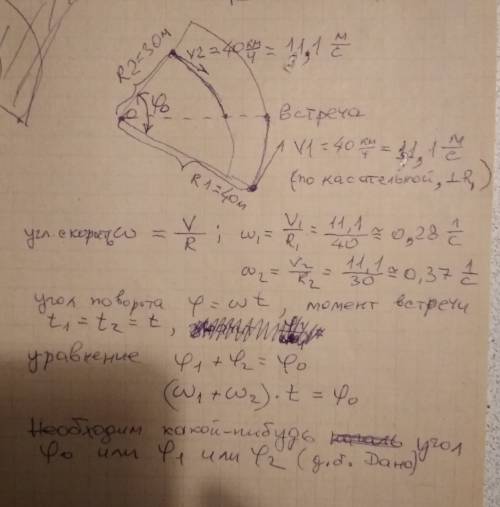 R2=30м
V2=40 км/ч = 11,1 м/с
φ₀
встреча
V1=40 км/ч = 11,1 м/с
(по касательной, ⊥R₁)
R1=40м
угл. скорость ω = V/R ; ω₁ = V₁/R₁ = 11,1/40 ≅ 0,28 1/с
ω₂ = V₂/R₂ = 11,1/30 ≅ 0,37 1/с
угол поворота φ = ωt, момент встречи
t₁ = t₂ = t,
уравнение φ₁ + φ₂ = φ₀
(ω₁ + ω₂)·t = φ₀
Необходим какой-нибудь угол
φ₀ или φ₁ или φ₂ (д.б. Дано)